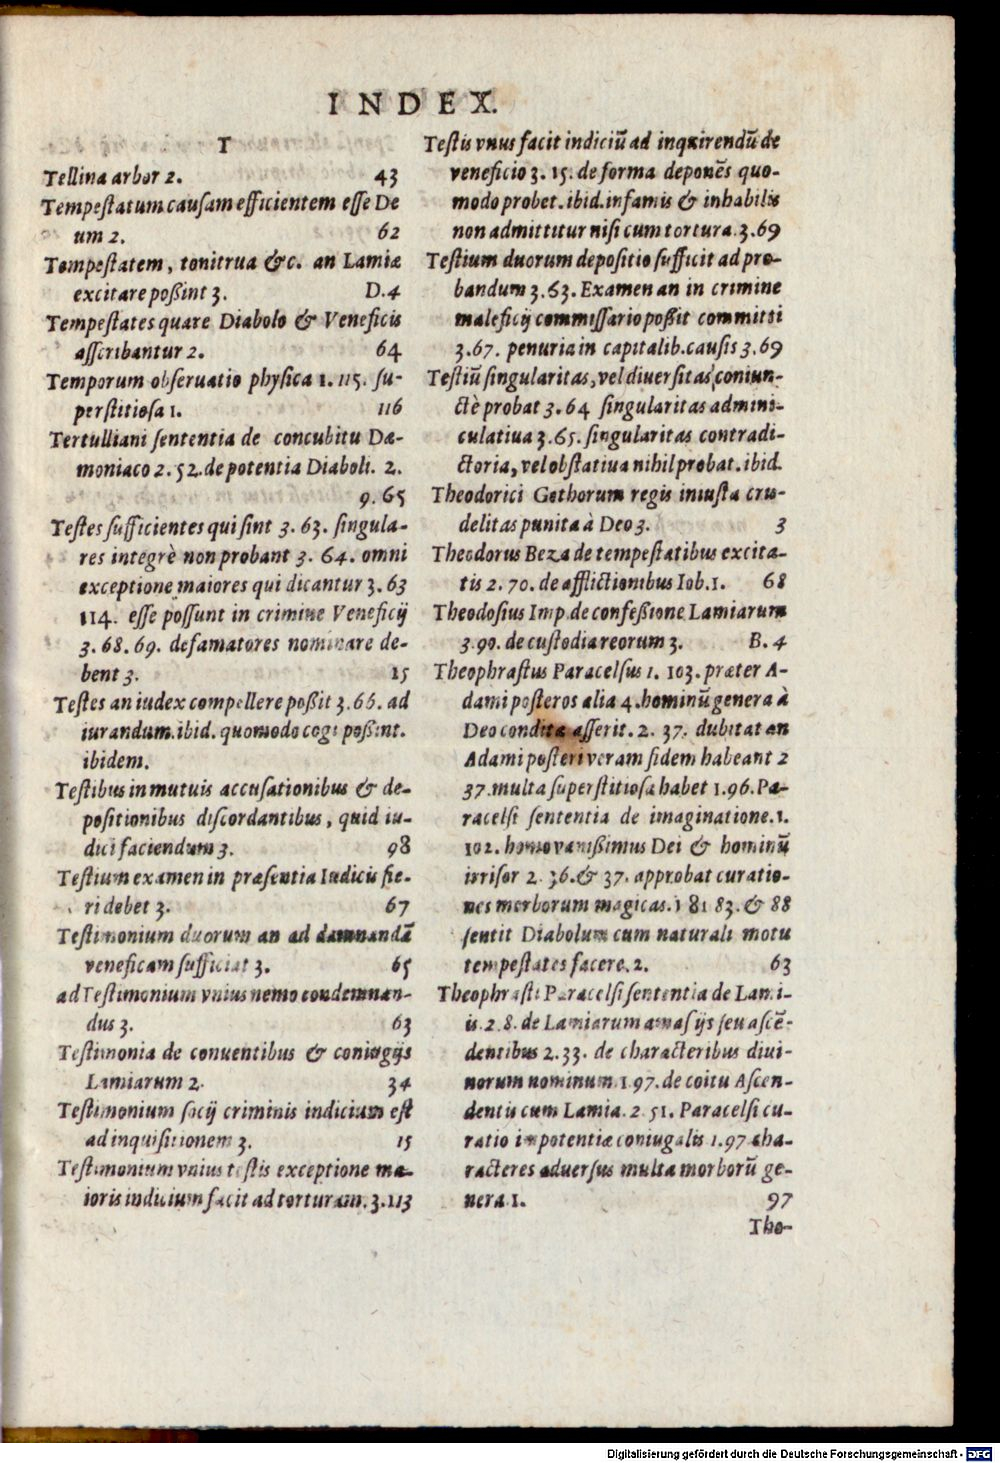 INDEX.
T
Tellina arbor 2. 43
Tempeſtatum cauſam efficientem eſſe De
um 2. 62
Tempeſtatem, tonitrua &c. an Lamiæ
excitare poßint 3. D.4
Tempeſtates quare Diabolo & Veneficis
aſſcribantur 2. 64
Temporum obſeruatio phyſica 1. 115. ſu-
perſtitioſa 1. 116
Tertulliani ſententia de concubitu Dæ-
moniaco 2. 52. de potentia Diaboli. 2.
9. 65
Teſtes ſufficientes qui ſint 3. 63. ſingula-
res integrè non probant 3. 64. omni
exceptione maiores qui dicantur 3. 63
114. eſſe poſſunt in crimine Veneficij
3. 68. 69. defamatores nominare de-
bent 3. 15
Teſtes an iudex compellere poßit 3. 66. ad
iurandum. ibid. quomodo cogi poßint.
ibidem.
Teſtibus in mutuis accuſationibus & de-
poſitionibus diſcordantibus, quid iu-
dici faciendum 3. 98
Teſtium examen in præſentia Iudicis fie-
ri debet 3. 67
Teſtimonium duorum an ad damnandã
veneficam ſufficiat 3. 65
ad Teſtimonium vnius nemo condemnan-
dus 3. 63
Teſtimonia de conuentibus & coniugijs
Lamiarum 2. 34
Teſtimonium ſocij criminis indicium eſt
ad inquiſitionem 3. 15
Teſtimonium vnius teſtis exceptione ma-
ioris indicium facit ad torturam. 3.113
Teſtis vnus facit indiciũ ad inquirendũ de
veneficio 3. 15. de forma deponẽs quo-
modo probet. ibid. infamis & inhabilis
non admittitur niſi cum tortura. 3.69
Teſtium duorum depoſitio ſufficit ad pro-
bandum 3.63. Examen an in crimine
maleficij commiſſario poßit committi
3.67. penuria in capitalib. cauſis 3.69
Teſtiũ ſingularitas, vel diuerſitas coniun-
ctè probat 3.64 ſingularitas admini-
culatiua 3.65. ſingularitas contradi-
ctoria, vel obſtatiua nihil probat. ibid.
Theodorici Gothorum regis iniuſta cru-
delitas punita à Deo 3. 3
Theodorus Beza de tempeſtatibus excita-
tis 2. 70. de afflictionibus Iob. 1. 68
Theodoſius Imp. de confeßione Lamiarum
3.90. de cuſtodia reorum 3. B. 4
Theophraſtus Paracelſus 1. 103. præter A-
dami poſteros alia 4. hominũ genera à
Deo condita aſſerit. 2. 37. dubitat an
Adami poſteri veram fidem habeant 2
37. multa ſuperſtitioſa habet 1.96. Pa-
racelſi ſententia de imaginatione. 1.
102. homo vanißimus Dei & hominũ
irriſor 2. 36. & 37. approbat curatio-
nes morborum magicas. 1 81 83. & 88
ſentit Diabolum cum naturali motu
tempeſtates facere. 2. 63
Theophraſti Paracelſi ſententia de Lami-
is. 2. 8. de Lamiarum amaſijs ſeu aſcẽ-
dentibus 2. 33. de characteribus diui-
norum nominum. 1.97. de coitu Aſcen-
dentis cum Lamia. 2. 51. Paracelſi cu-
ratio impotentiæ coniugalis 1.97 cha-
racteres aduerſus multa morborũ ge-
nera 1. 97
Theo-
Digitalisierung gefördert durch die Deutsche Forschungsgemeinschaft - DFG